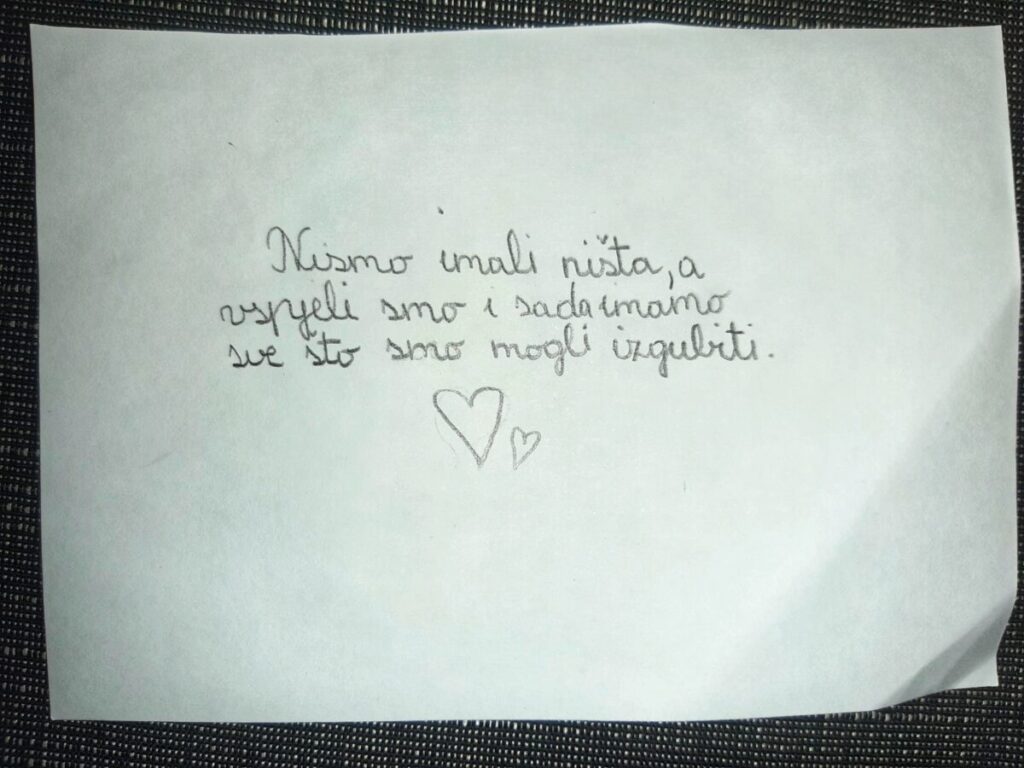 Nismo imali ništa, a
uspjeli smo i sada imamo
sve što smo mogli izgubiti.